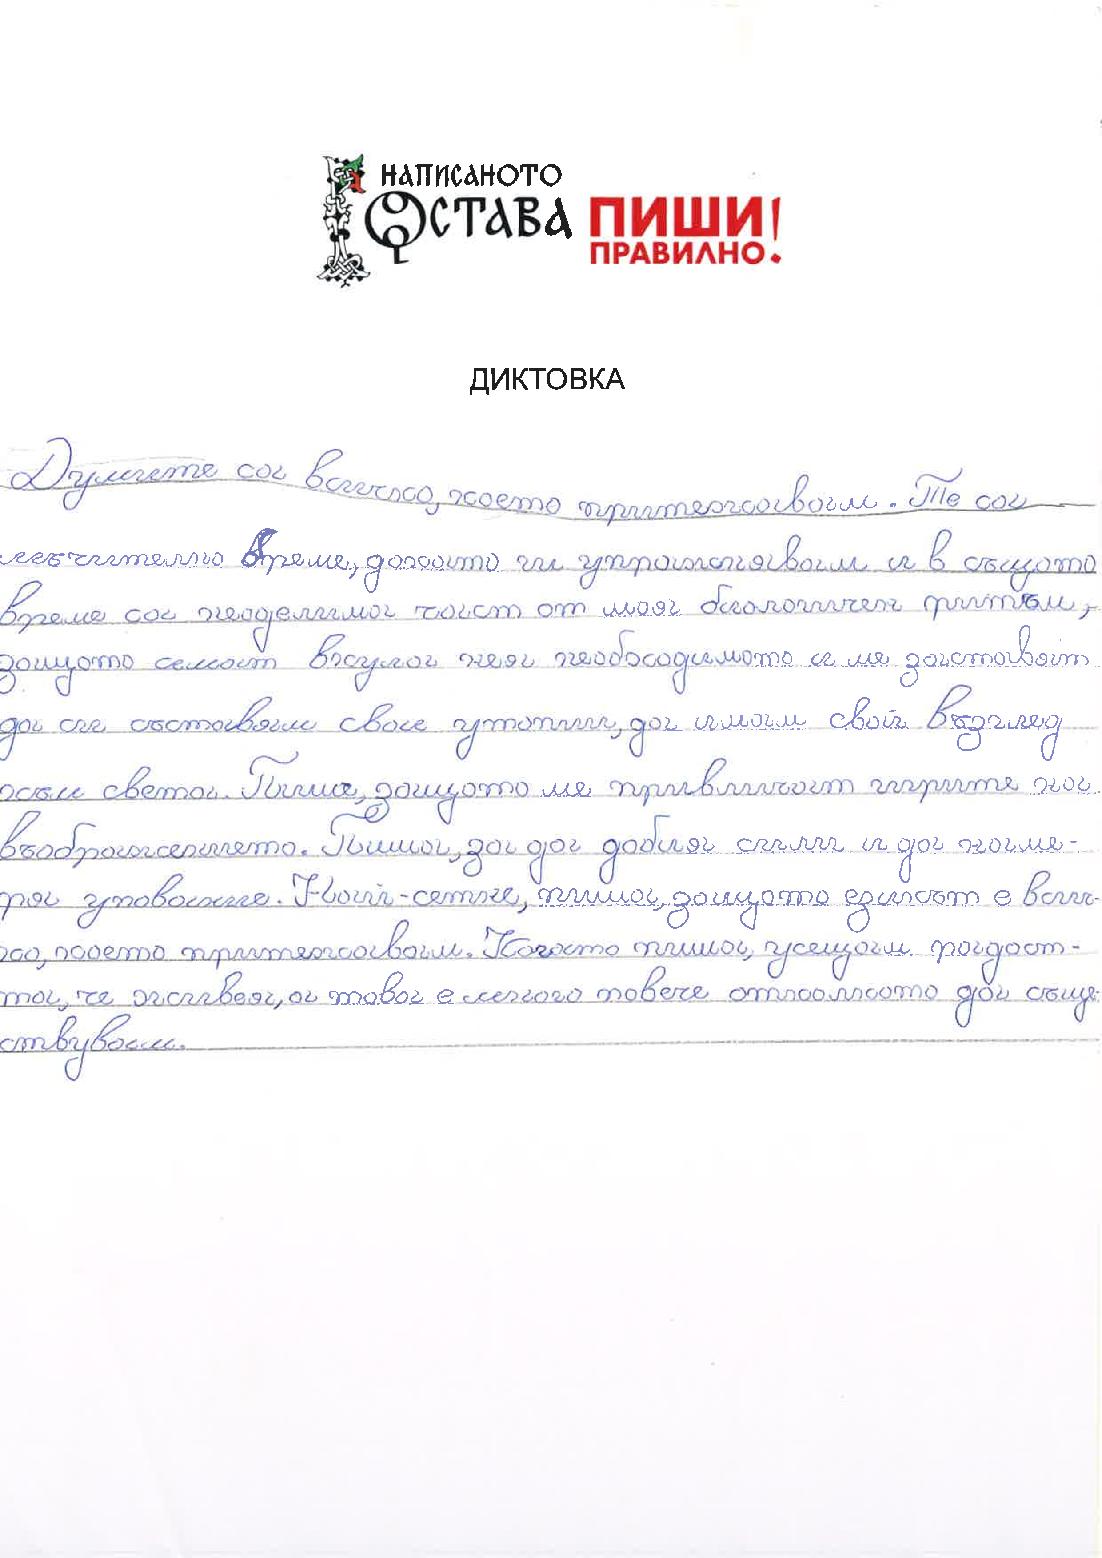 НАПИСАНОТО
ОСТАВА ПИШИ
ПРАВИЛНО!
ДИКТОВКА
Думите са всичко, което притежавам. Те са
време, докато ги упражнявам и в същото
време са неделима част от моя биологичен ритъм,
защото са необходимото и ме заставят
да си съставям свое утопии, да имам свой възглед
към света. Пиша, защото ме привличат игрите на
въображението. Пиша, за да добия сили и да наме-
ря упование. Най-сетне, пиша, защото езикът е всич-
ко, което притежавам. Когато пиша, усещам радост-
та, че живея, а това е много повече отколкото да съще-
ствувам.